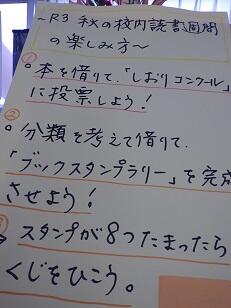 ~R3 秋の校内読書週間
の楽しみ方~
① 本を借りて、「しおりコンクール」
に投票しよう!
② 分類を考えて借りて、
「ブックスタンプラリー」を完成
させよう!
③ スタンプが8つたまったら
くじをひこう。